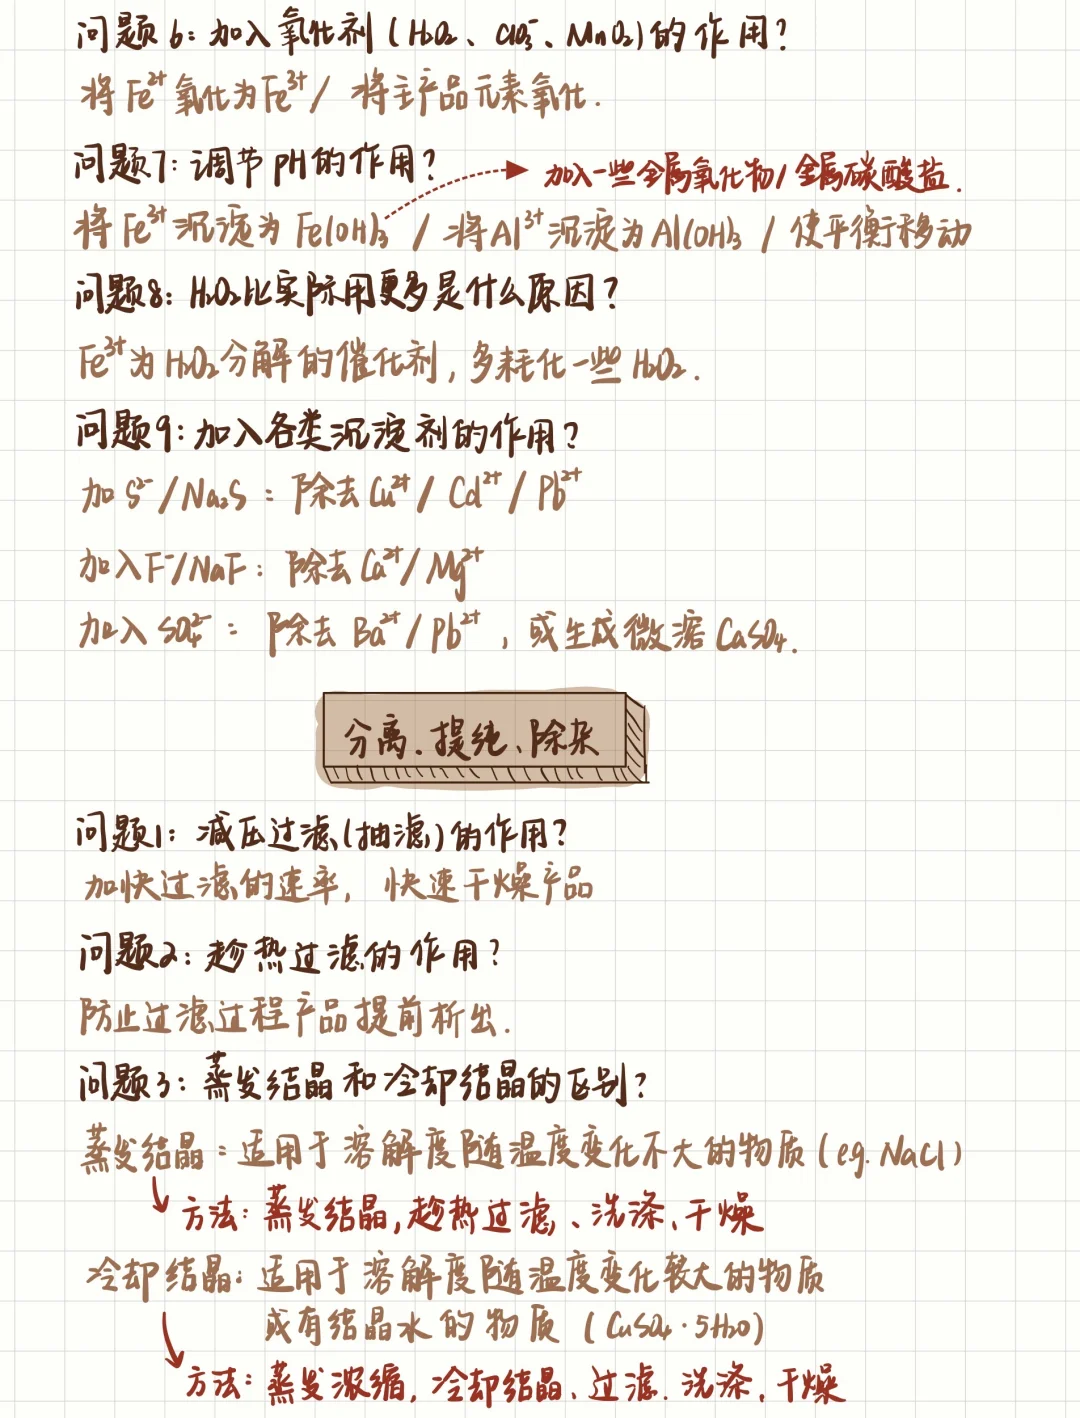 问题6：加入氧化剂(H₂O₂、ClO₃⁻、MnO₂)的作用？
将Fe²⁺氧化为Fe³⁺/ 将主产品元素氧化.
问题7：调节pH的作用？
加入一些金属氧化物/金属碳酸盐.
将Fe³⁺沉淀为Fe(OH)₃ / 将Al³⁺沉淀为Al(OH)₃ / 使平衡移动
问题8：H₂O₂比实际用更多是什么原因？
Fe³⁺为H₂O₂分解的催化剂，多耗化一些H₂O₂.
问题9：加入各类沉淀剂的作用？
加S²⁻/Na₂S：除去Cu²⁺/Cd²⁺/Pb²⁺
加入F⁻/NaF：除去Ca²⁺/Mg²⁺
加入SO₄²⁻：除去Ba²⁺/Pb²⁺，或生成微溶CaSO₄.
分离、提纯、除杂
问题1：减压过滤(抽滤)的作用？
加快过滤的速率，快速干燥产品
问题2：趁热过滤的作用？
防止过滤过程产品提前析出.
问题3：蒸发结晶和冷却结晶的区别？
蒸发结晶：适用于溶解度随温度变化不大的物质(eg. NaCl)
方法：蒸发结晶,趁热过滤、洗涤、干燥
冷却结晶：适用于溶解度随温度变化较大的物质
或有结晶水的物质(CuSO₄·5H₂O)
方法：蒸发浓缩，冷却结晶、过滤、洗涤、干燥